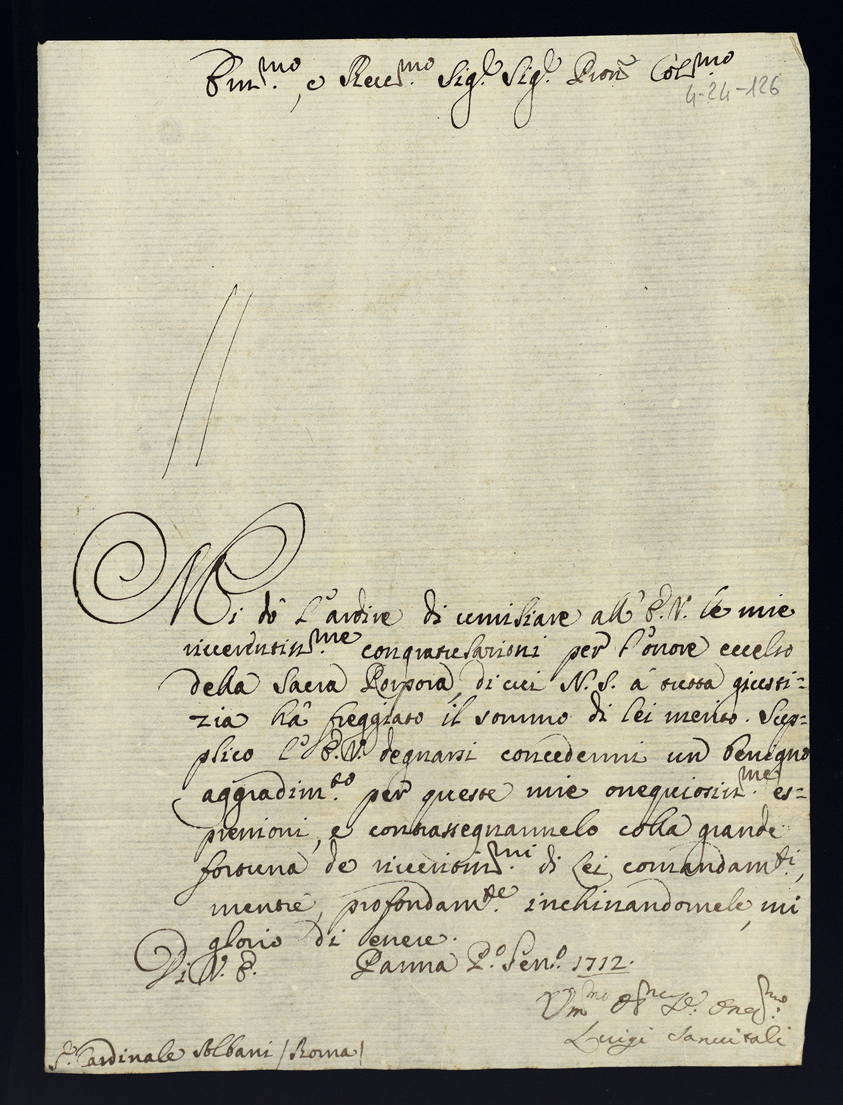 Em.mo, e Reve.mo Sig.r Sig.r Pron. Col.mo
4-24-126
Mi dò l'ardire di umiliare all' E.V. le mie
riverentiss.me congratulazioni per l'onore eccelso
della Sacra Porpora, di cui N. S. à tutta giusti=
zia hà freggiato il sommo di lei merito. Sup=
plico l' E.V. degnarsi concedermi un benigno
aggradim.to per queste mie ossequiosiss.me es=
pressioni, e contrassegnarmelo colla grande
fortuna de riveritiss.mi di Lei comandam.ti,
mentre, profondam.te inchinandomele, mi
glorio di essere.
Di V. E. Parma P.o Gen.o 1712.
Luigi Sanvitali
S.r Cardinale Albani / Roma /